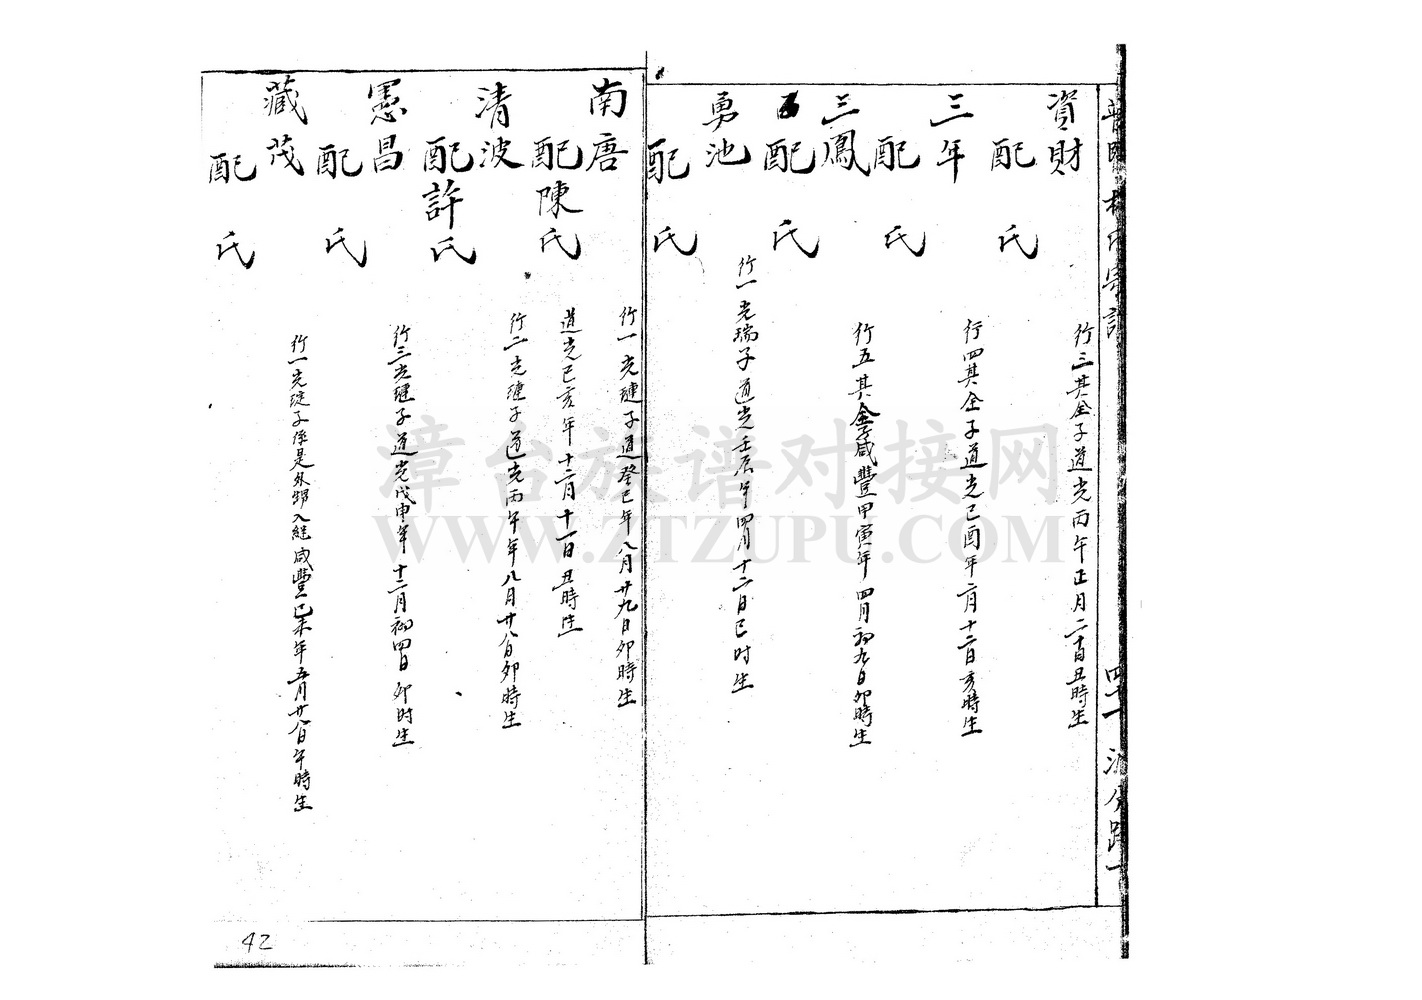 資財
行三其全子道光丙午正月二十日丑時生
配 氏
三年
行四其全子道光己酉年二月十二日亥時生
配 氏
三鳳
行五其全子咸豐甲寅年四月初九日卯時生
配 氏
勇池
行一光瑞子道光壬辰年四月十二日巳时生
配 氏
南唐
行一光璉子道癸巳年八月廿九日卯時生
配陳氏
道光己亥年十二月十一日丑時生
清波
行二光璉子道光丙午年八月廿八日卯時生
配許氏
憲昌
行三光璉子道光戊申年十二月初四日卯时生
配 氏
藏茂
行一光 子 是外 入継咸豐己未年五月廿八日午時生
配 氏
42
漳台族谱对接网
WWW.ZTZUPU.COM